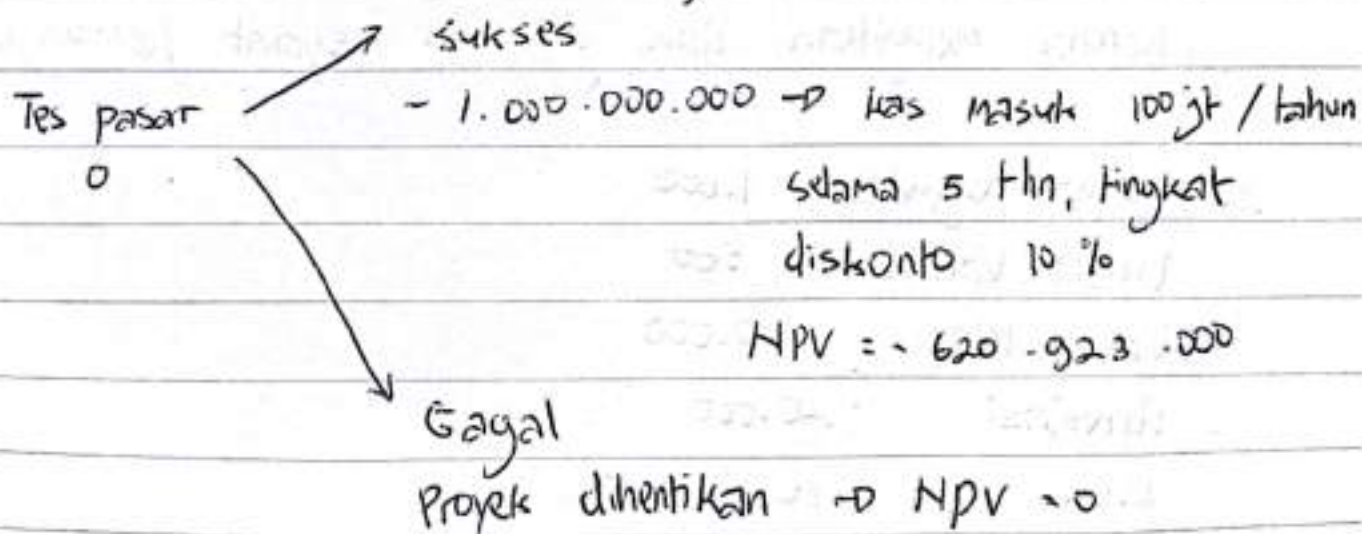 sukses
Tes pasar - 1.000.000.000 → kas masuk 100 jt / tahun
0 selama 5 thn, tingkat
diskonto 10 %
NPV = - 620.923.000
Gagal
Proyek dihentikan → NPV = 0